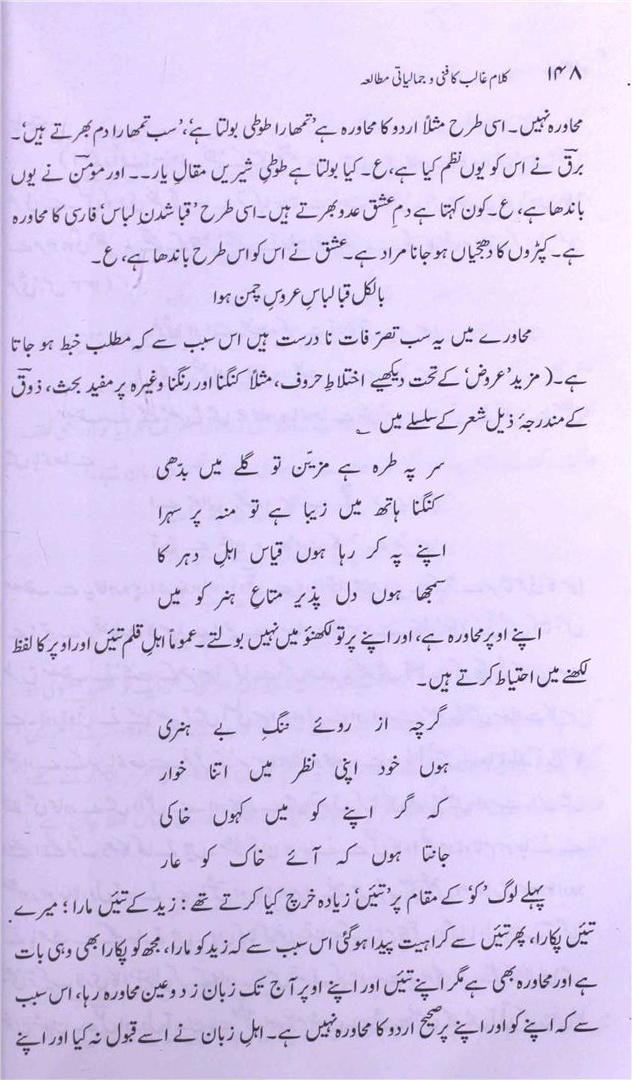 ۱۴۸ کلام غالب کا فنی و جمالیاتی مطالعہ
محاورہ نہیں۔ اسی طرح مثلاً اردو کا محاورہ ہے 'تمھارا طوطی بولتا ہے'، 'سب تمھارا دم بھرتے ہیں'۔
برقؔ نے اس کو یوں نظم کیا ہے، ع۔ کیا بولتا ہے طوطیِ شیریں مقالِ یار۔۔ اور مومنؔ نے یوں
باندھا ہے، ع۔ کون کہتا ہے دمِ عشق عدو بھرتے ہیں۔ اسی طرح 'قبا شدنِ لباس' فارسی کا محاورہ
ہے۔ کپڑوں کا دھجیاں ہو جانا مراد ہے۔ عشق نے اس کو اس طرح باندھا ہے، ع۔
بالکل قبا لباسِ عروسِ چمن ہوا
محاورے میں یہ سب تصرّفات نا درست ہیں اس سبب سے کہ مطلب خبط ہو جاتا
ہے۔ (مزید 'عروض' کے تحت دیکھیے اختلاطِ حروف، مثلاً کنگنا اور رنگنا وغیرہ پر مفید بحث، ذوقؔ
کے مندرجۂ ذیل شعر کے سلسلے میں ؎
سر پہ طرہ ہے مزیّن تو گلے میں بدّھی
کنگنا ہاتھ میں زیبا ہے تو منہ پر سہرا
اپنے پہ کر رہا ہوں قیاس اہلِ دہر کا
سمجھا ہوں دل پذیر متاعِ ہنر کو میں
اپنے اوپر محاورہ ہے، اور اپنے پر تو لکھنؤ میں نہیں بولتے۔ عموماً اہلِ قلم تئیں اور اوپر کا لفظ
لکھنے میں احتیاط کرتے ہیں۔
گرچہ از روئے ننگِ بے ہنری
ہوں خود اپنی نظر میں اتنا خوار
کہ گر اپنے کو میں کہوں خاکی
جانتا ہوں کہ آئے خاک کو عار
پہلے لوگ 'کو' کے مقام پر 'تئیں' زیادہ خرچ کیا کرتے تھے: زید کے تئیں مارا؛ میرے
تئیں پکارا، پھر تئیں سے کراہیت پیدا ہو گئی اس سبب سے کہ زید کو مارا، مجھ کو پکارا بھی وہی بات
ہے اور محاورہ بھی ہے مگر اپنے تئیں اور اپنے اوپر آج تک زبان زد و عین محاورہ رہا، اس سبب
سے کہ اپنے کو اور اپنے پر صحیح اردو کا محاورہ نہیں ہے۔ اہلِ زبان نے اسے قبول نہ کیا اور اپنے